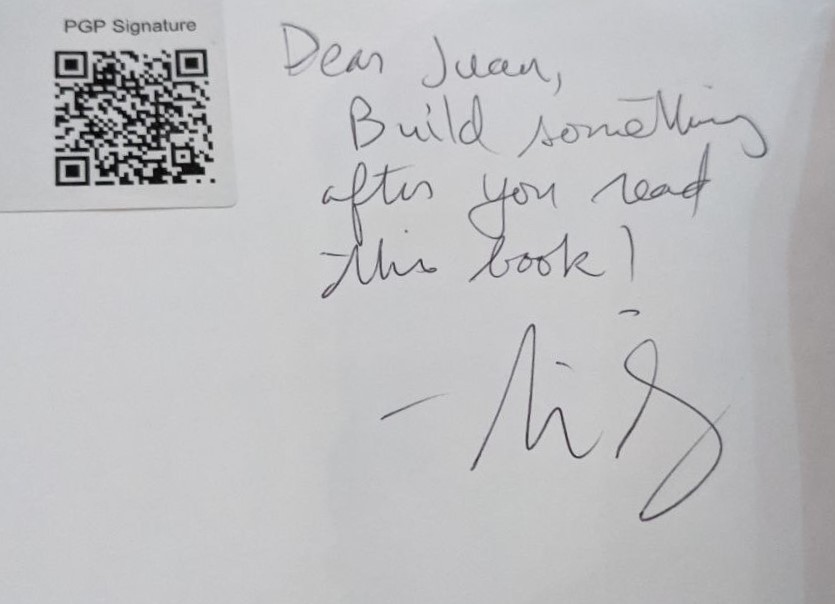 PGP Signature
Dear Juan,
Build something
after you read
this book!